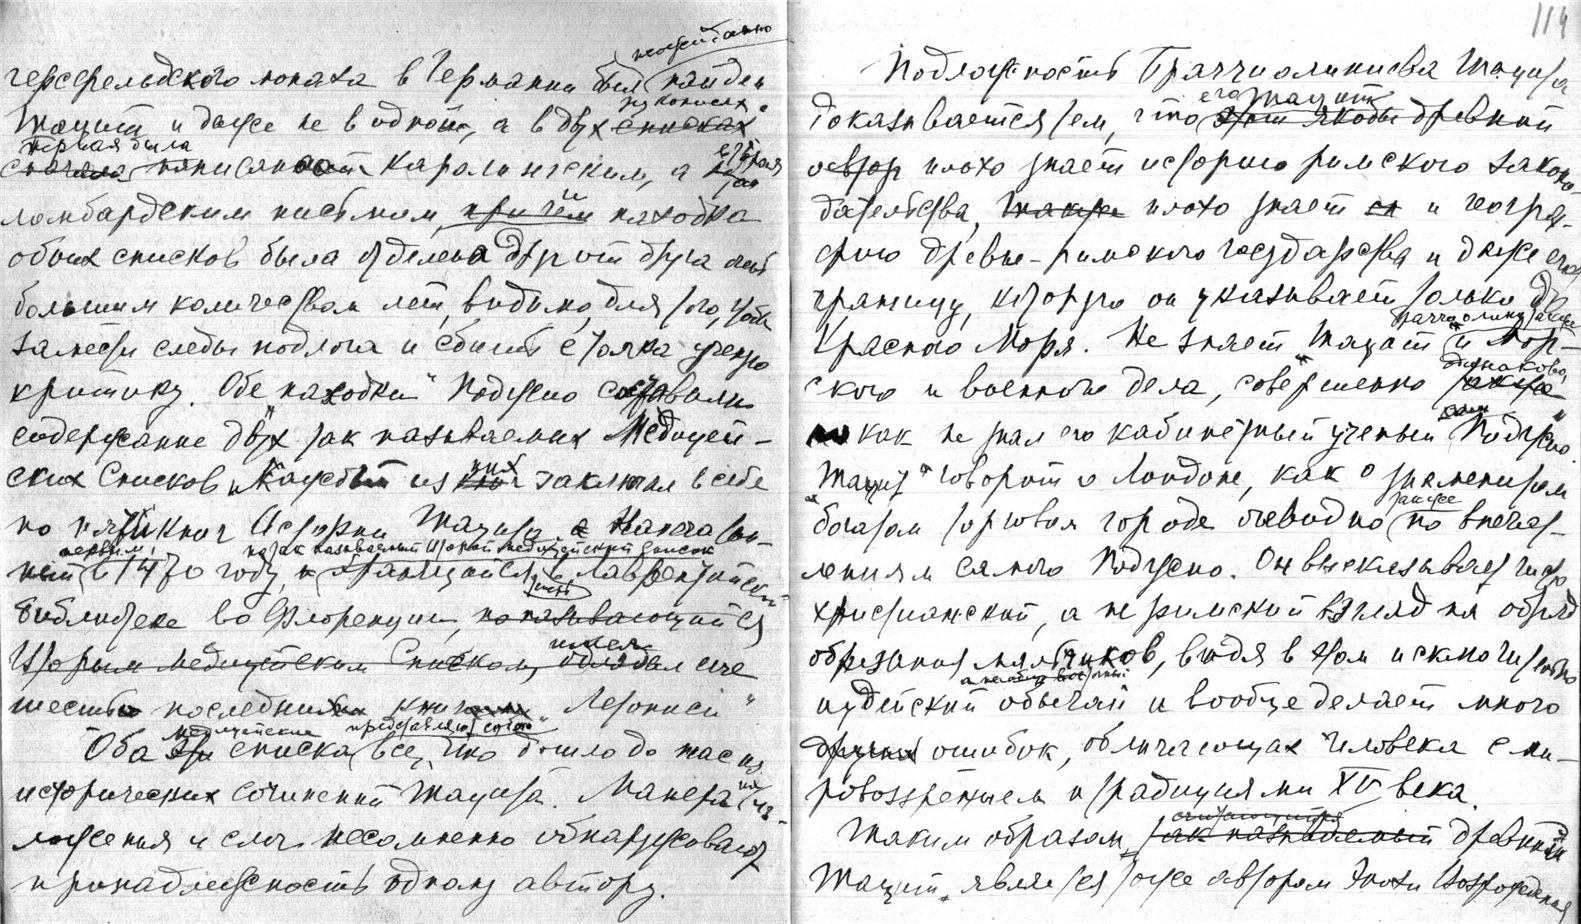 неожиданно
герсфельдского монаха в Германии был найден
рукописях.
Тацит и даже не в одной, а в двух списках
первая была вторая
сначала написанной каролингским, а
ломбардским письмом, причём и находка
обоих списков была отделена друг от друга
большим количеством лет, видимо, для того, чтоб
замести следы подлога и сбить с толка ученую
критику. Обе находки "Поджио составили
содержание двух так называемых Медицей-
ских Списков". Каждый из них заключал в себе
по пяти книг Истории Тацита, а Напечатан-
первым, на так называемый второй медицейский список
ный в 1470 году, и хранящийся в Лаврентийской
библиотеке во Флоренции, называющийся
имел
Вторым Медицейским Списком, обладал еще
шестью последними книгами "Летописи"
медицейские представляют собою
Оба эти списка все, что дошло до нас из
исторических сочинений Тацита. Манера их из-
ложения и слог несомненно обнаруживают
принадлежность одному автору.
114
Подложность Браччиолиниева Тацита
его Тацит
доказывается тем, что этот якобы древний
автор плохо знает историю римского законо-
дательства, также плохо знает и геогра-
фию древне-римского государства и даже его
границу, которую он указывает только до
Браччиолини также
Красного Моря. Не знает "Тацит" и Мор-
одинаково,
ского и военного дела, совершенно также
сам
как не знал его кабинетный ученый Поджио.
"Тацит" говорит о Лондоне, как о знаменитом
также
богатом торговом городе очевидно по впечат-
лениям самого Поджио. Он высказывает чисто
христианский, а не римский взгляд на обряд
обрезания мальчиков, видя в этом исключительно
иудейский обычай и вообще делает много
других ошибок, обличающих человека с ми-
ровоззрением и традициями XV века.
считающийся
Таким образом, так называемый древний
Тацит" является тоже автором Эпохи Возрождения